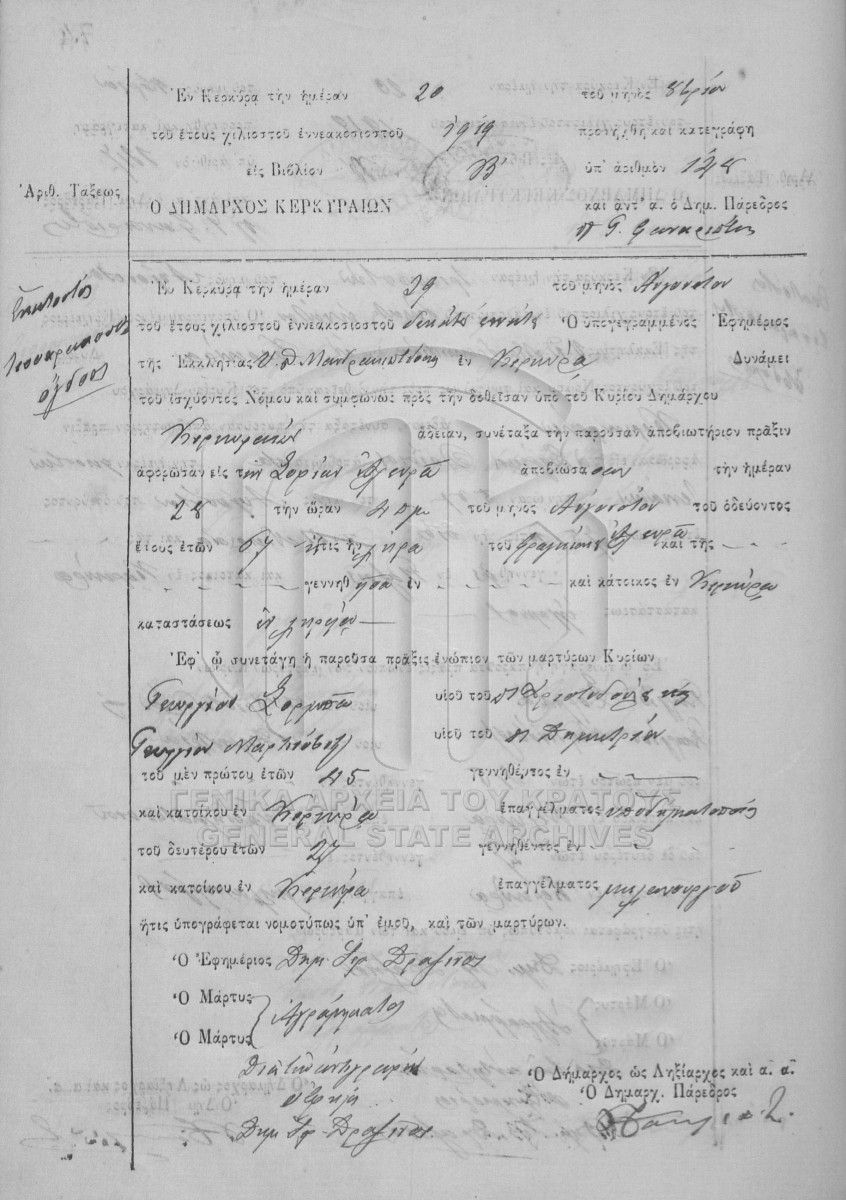 Ἐν Κερκύρᾳ τὴν ἡμέραν 20 τοῦ μηνὸς 8βρίου
τοῦ ἔτους χιλιοστοῦ ἐννεακοσιοστοῦ 1919 προσήχθη καὶ κατεγράφη
εἰς Βιβλίον Β' ὑπ' ἀριθμὸν 148
Ἀριθ. Τάξεως
Ὁ ΔΗΜΑΡΧΟΣ ΚΕΡΚΥΡΑΙΩΝ καὶ ἀντ' α. ὁ Δημ. Πάρεδρος
Γ.
Ἑκατοστὸς
τεσσαρακοστὸς
ὄγδοος
Ἐν Κερκύρᾳ τὴν ἡμέραν 29 τοῦ μηνὸς Αὐγούστου
τοῦ ἔτους χιλιοστοῦ ἐννεακοσιοστοῦ δεκάτου ἐννάτου Ὁ ὑπογεγραμμένος Ἐφημέριος
τῆς Ἐκκλησίας Υ. Θ. Μανδρακιωτίσσης ἐν Κερκύρᾳ Δυνάμει
τοῦ ἰσχύοντος Νόμου καὶ συμφώνως πρὸς τὴν δοθεῖσαν ὑπὸ τοῦ Κυρίου Δημάρχου
Κερκυραίων ἄδειαν, συνέταξα τὴν παροῦσαν ἀποβιωτήριον πρᾶξιν
ἀφορῶσαν εἰς τὴν Σοφίαν ἀποβιώσασαν τὴν ἡμέραν
28 τὴν ὥραν 4 πμ τοῦ μηνὸς Αὐγούστου τοῦ ὁδεύοντος
ἔτους ἐτῶν 67 ἥτις ἦν χήρα τοῦ καὶ τῆς
γεννηθεῖσα ἐν καὶ κάτοικος ἐν Κερκύρᾳ
καταστάσεως ἐν χηρείᾳ
Ἐφ' ᾧ συνετάγη ἡ παροῦσα πρᾶξις ἐνώπιον τῶν μαρτύρων Κυρίων
Γεωργίου υἱοῦ τοῦ π Χριστοδούλου κὶ
Γεωργίου υἱοῦ τοῦ π Δημητρίου
τοῦ μὲν πρώτου ἐτῶν 45 γεννηθέντος ἐν
καὶ κατοίκου ἐν Κερκύρᾳ ἐπαγγέλματος ὑποδηματοποιὸς
ΓΕΝΙΚΑ ΑΡΧΕΙΑ ΤΟΥ ΚΡΑΤΟΥΣ
GENERAL STATE ARCHIVES
τοῦ δευτέρου ἐτῶν 27 γεννηθέντος ἐν
καὶ κατοίκου ἐν Κερκύρᾳ ἐπαγγέλματος μηχανουργοῦ
ἥτις ὑπογράφεται νομοτύπως ὑπ' ἐμοῦ, καὶ τῶν μαρτύρων.
Ὁ Ἐφημέριος Δημ. Σπ.
Ὁ Μάρτυς
Ἀγράμματοι
Ὁ Μάρτυς
Διὰ τὴν ἀντιγραφὴν
Ὁ Δήμαρχος ὡς Ληξίαρχος καὶ α. α.
Ὁ Δημαρχ. Πάρεδρος
Δημ. Σπ.